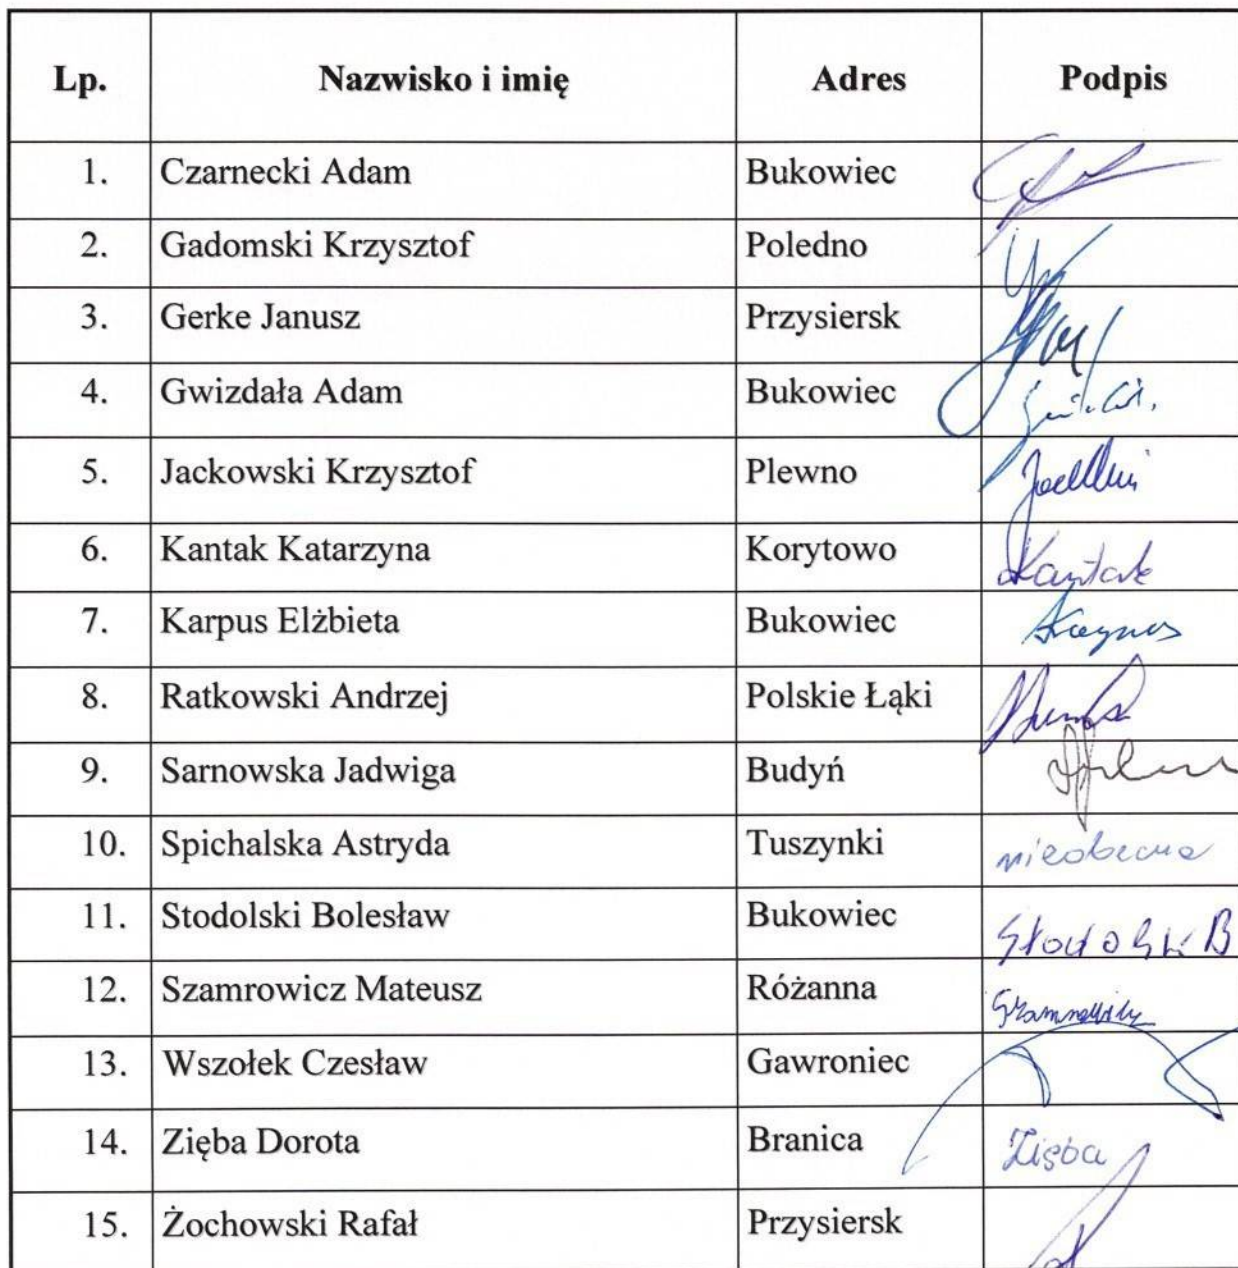 Lp. Nazwisko i imię Adres Podpis
1. Czarnecki Adam Bukowiec
2. Gadomski Krzysztof Poledno
3. Gerke Janusz Przysiersk
4. Gwizdała Adam Bukowiec
5. Jackowski Krzysztof Plewno
6. Kantak Katarzyna Korytowo Kantak
7. Karpus Elżbieta Bukowiec Karpus
8. Ratkowski Andrzej Polskie Łąki
9. Sarnowska Jadwiga Budyń
10. Spichalska Astryda Tuszynki nieobecna
11. Stodolski Bolesław Bukowiec
12. Szamrowicz Mateusz Różanna
13. Wszołek Czesław Gawroniec
14. Zięba Dorota Branica Zięba
15. Żochowski Rafał Przysiersk